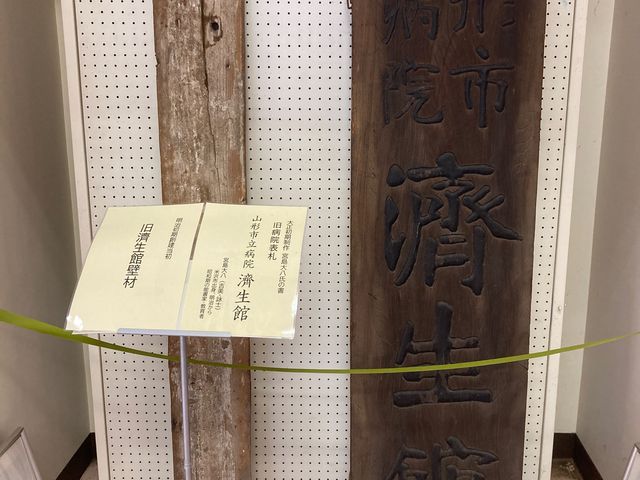 形
市
病
院
濟
生
館
大正初期制作 宮島大八氏の書
旧病院表札
山形市立病院 濟生館
宮島大八（吉美・詠士）
米沢市出身 明治から
昭和期の能書家・教育者
明治初期創建当初
旧濟生館壁材